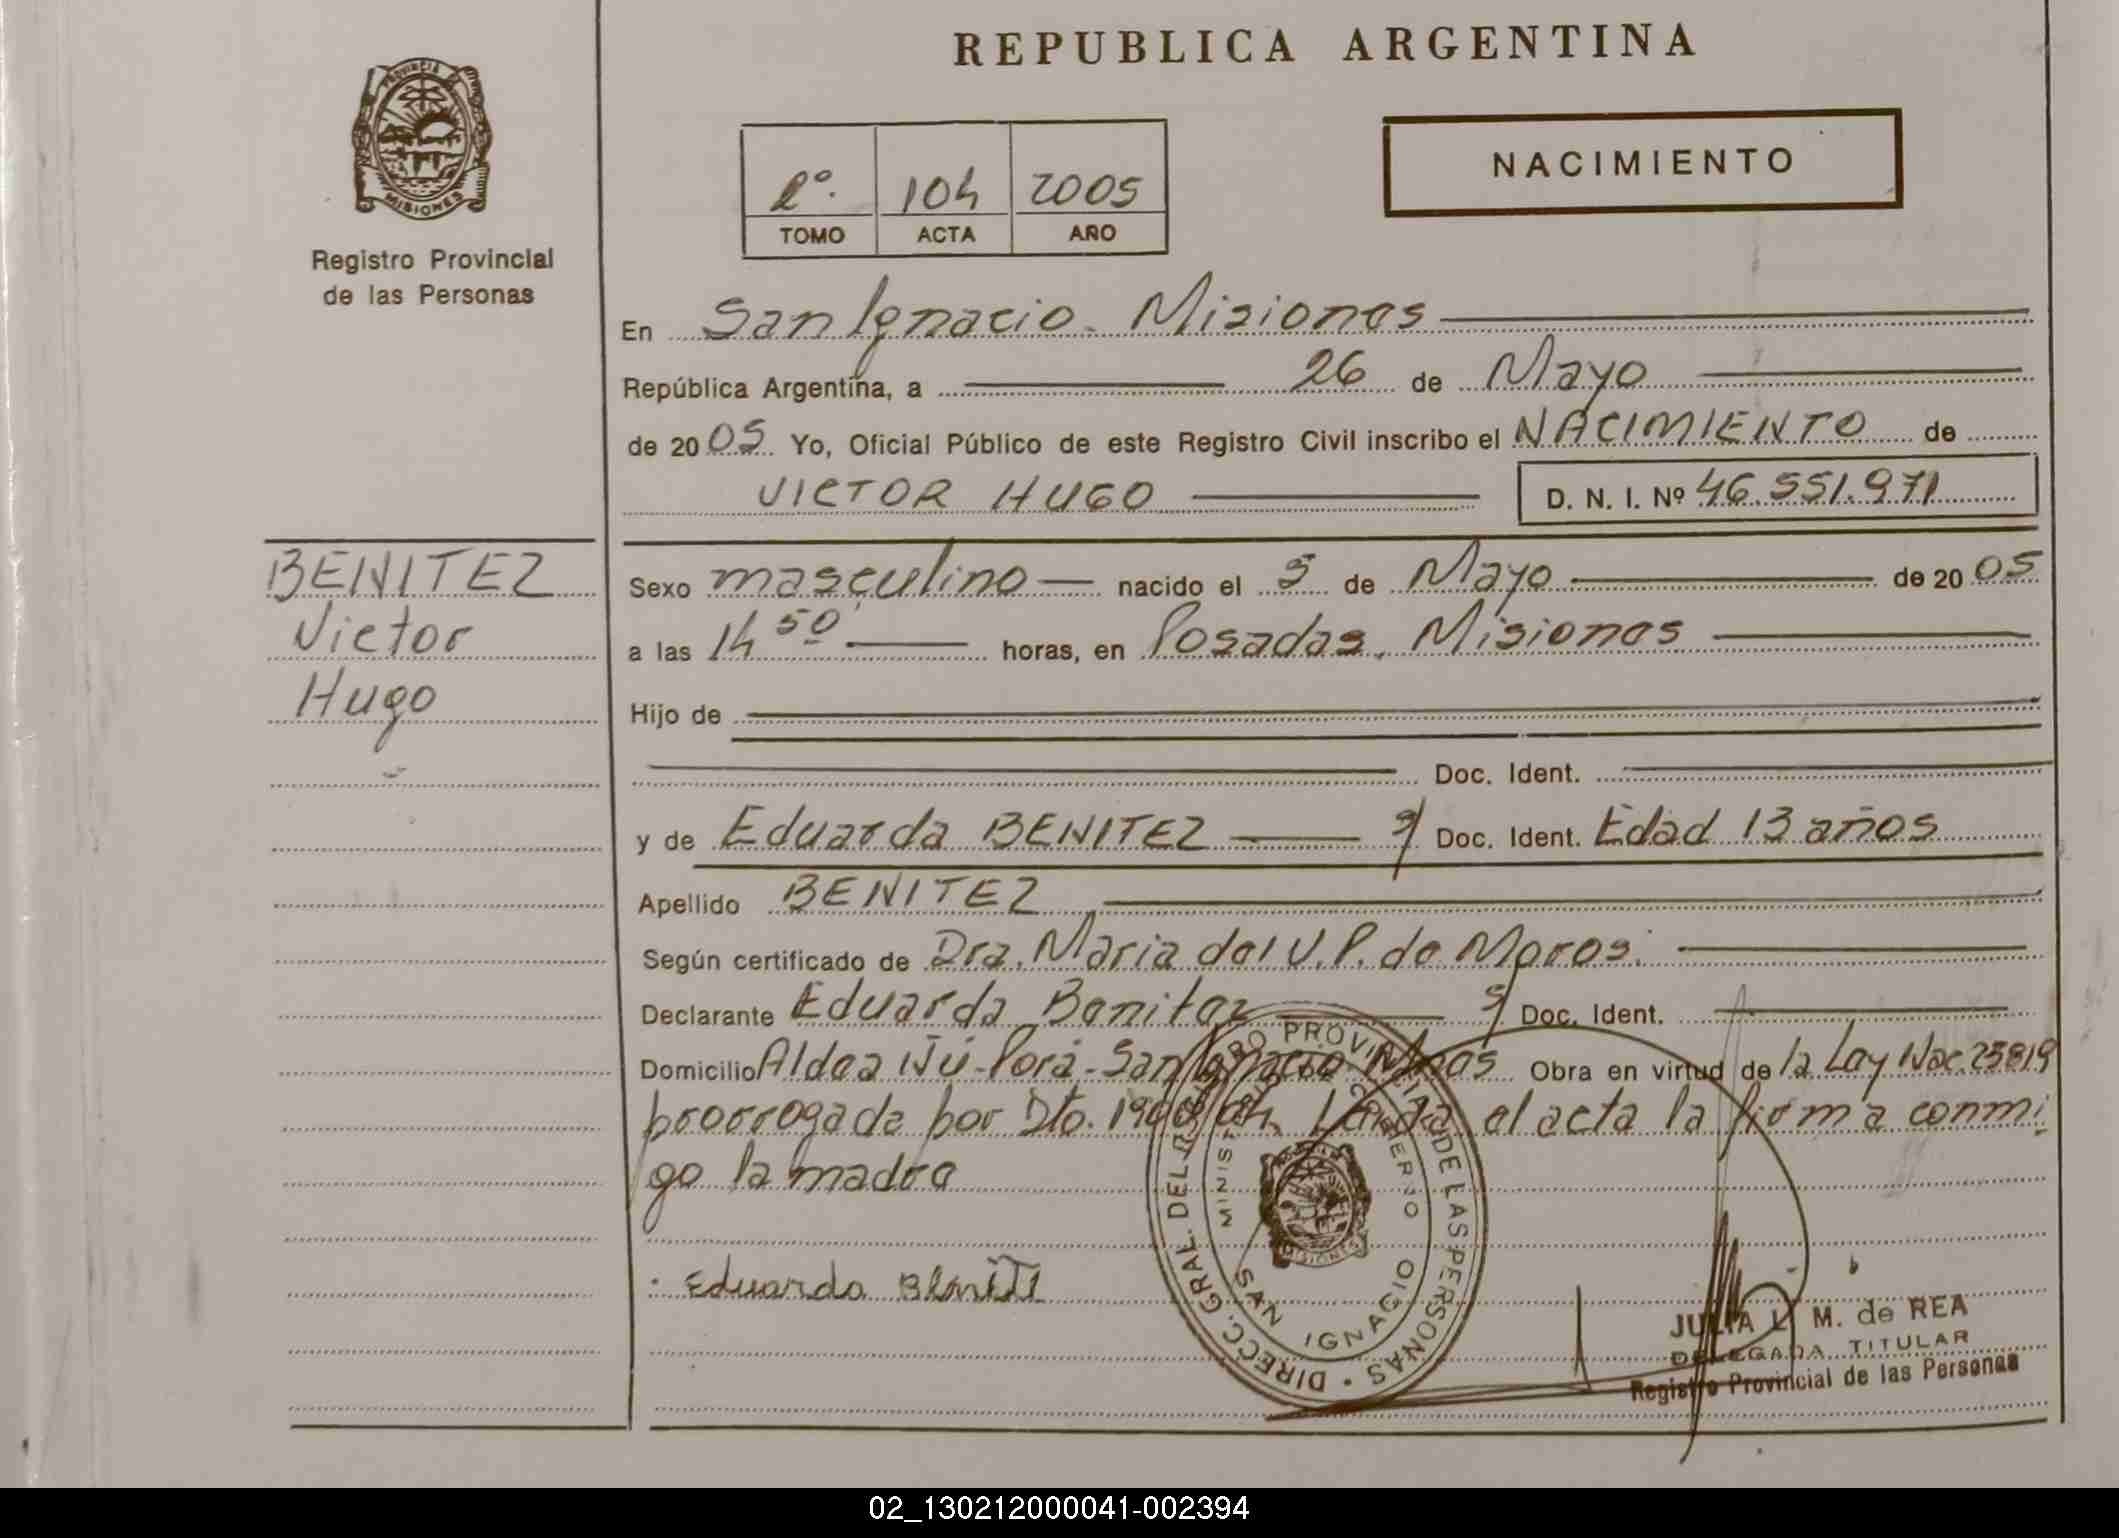 REPUBLICA ARGENTINA
PROVINCIA DE
MISIONES
Registro Provincial
de las Personas
104 2005
TOMO ACTA AÑO
NACIMIENTO
En San Ignacio - Misiones
República Argentina, a 26 de Mayo
de 2005 Yo, Oficial Público de este Registro Civil inscribo el NACIMIENTO de
VICTOR HUGO D. N. I. Nº 46.551.971
BENITEZ
Victor
Hugo
Sexo masculino nacido el 5 de Mayo de 2005
a las 14 50 horas, en Posadas, Misiones
Hijo de
Doc. Ident.
y de Eduarda BENITEZ s/ Doc. Ident. Edad 13 años
Apellido BENITEZ
Según certificado de Dra. Maria del V. P. de
Declarante Eduarda Benitez s/ Doc. Ident.
Domicilio Aldea Ñú-Porá - San Ignacio Mnes Obra en virtud de la Ley Nac. 25819
prorrogada por Dto. el acta la firma conmi
go la madre
Eduarda
DIRECC. GRAL. DEL REGISTRO PROVINCIAL DE LAS PERSONAS
MINISTERIO DE GOBIERNO
SAN IGNACIO
MISIONES
JULIA L. M. de REA
DELEGADA TITULAR
Registro Provincial de las Personas
02_130212000041-002394